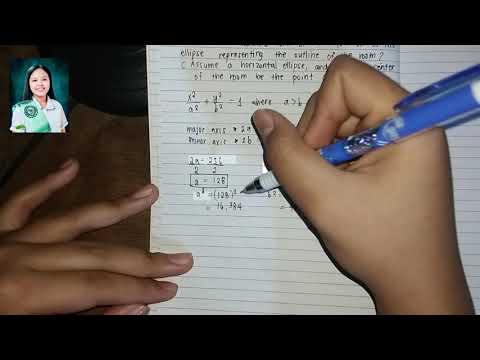 ellipse representing the outline of the room?
C. Assume a horizontal ellipse, and center
of the room be the point
x²/a² + y²/b² = 1 where a > b
major axis = 2a
minor axis = 2b
2a = 256
2 2
a = 128
a² = (128)²
= 16,384
=